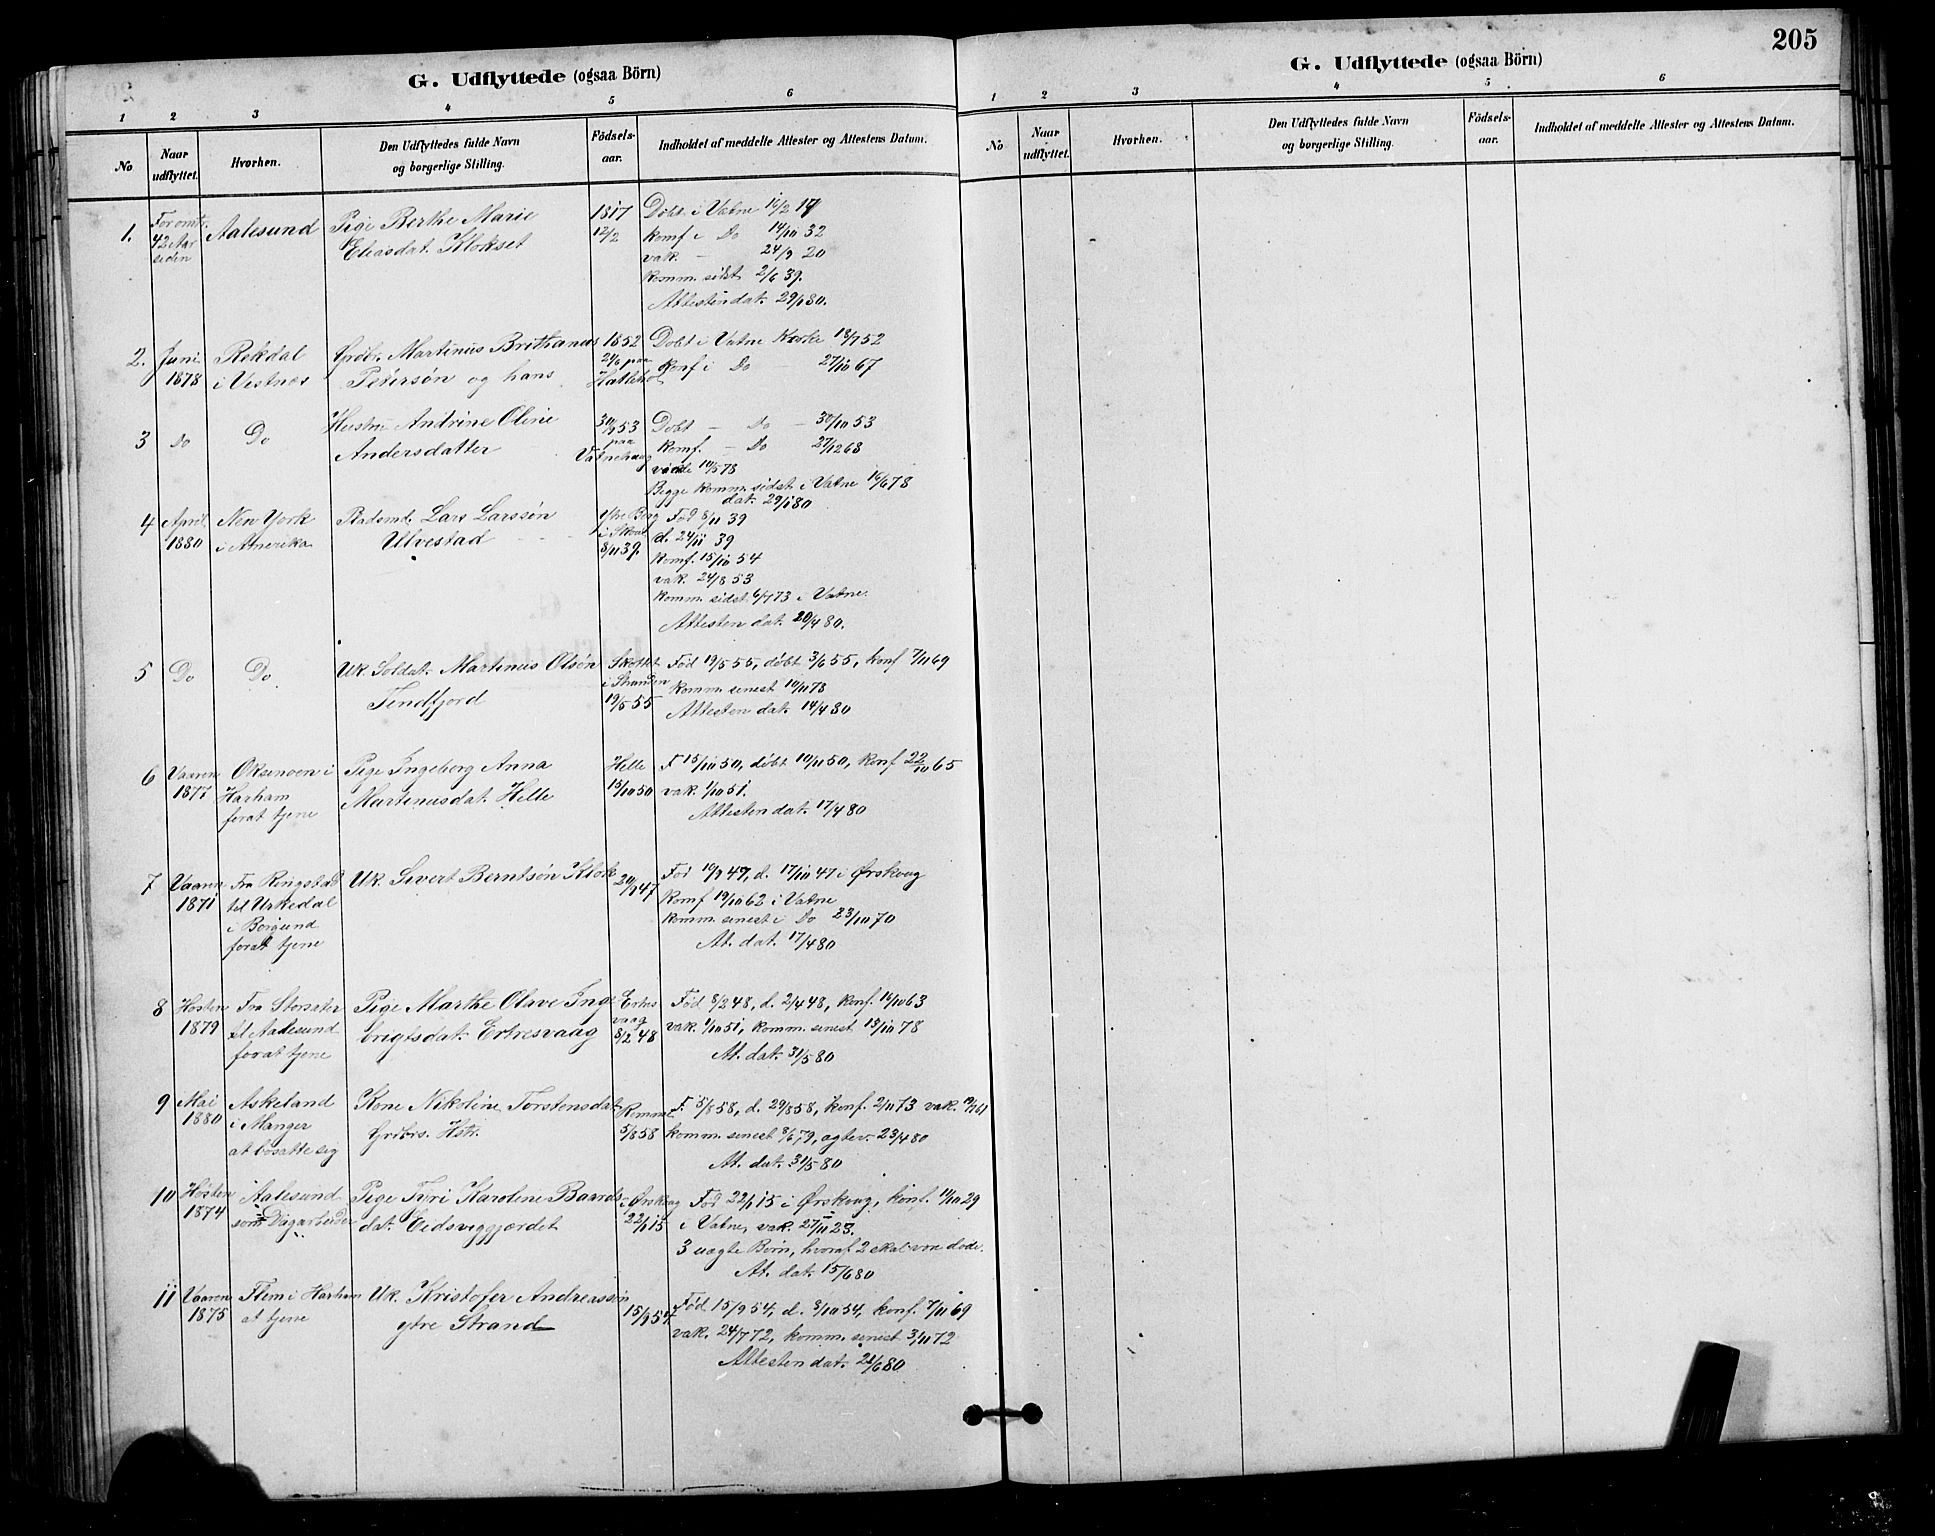 205
G. Udflyttede (ogsaa Börn)
1 2 3 4 5 6
No
Naar udflyttet.
Hvorhen.
Den Udflyttedes fulde Navn og borgerlige Stilling.
Födsels-aar.
Indholdet af meddelte Attester og Attestens Datum.
1.
For omtr.
42 Aar
siden
Aalesund
Pige Berthe Marie
Eliasdat. Klokset
1817
12/2
Döbt i Vatne 16/2 17
Komf i Do 14/10 32
vak. - 24/9 20
Komm. sidst 2/6 39.
Attesten dat. 29/1 80.
2.
Juni
1878
Rekdal
i Vestnes
Grdbr. Martinus Brithanus
Petersøn og hans
1852
24/6 paa
Döbt i Vatne Kirke 18/7 52
Konf i Do - 27/10 67
3
Do
Do
Hustru Andrine Oline
Andersdatter
30/9 53
paa
Vatnehaug
Dobt - Do - 30/10 53
Komf. - Do 27/12 68
10/5 78
Begge Komm. sidst i Vatne 16/6 78
dat. 29/1 80
4
April
1880
New York
i Amerika
Lars Larssøn
Ulvestad
Ytre Berg
8/11 39.
Fød 8/11 39
d. 24/11 39
Komf. 15/10 54
vak. 24/8 53
Komm. sidst 6/7 73 i Vatne.
Attesten dat. 20/4 80.
5
Do
Do
Uk. Soldat. Martinus Olsøn
Tendfjord
i Stranden
19/5 55
Fød 19/5 55, døbt 3/6 55, konf 7/11 69
Komm. senest 10/11 78
Attesten dat. 14/4 80
6
Vaaren
1877
Oksenoen i
Harham
forat tjene
Pige Ingeborg Anna
Martinusdat. Helle
Helle
15/10 50
F 15/10 50, døbt 10/11 50, Konf 22/10 65
vak. 1/10 51.
Attesten dat. 17/4 80
7
Vaaren
1871
Fra Ringstad
til Urkedal
i Borgund
forat tjene
Uk. Sivert Berntsøn Klok
20/9 47
Fød 19/9 47, d. 17/10 47 i Ørskoug
Komf 19/10 62 i Vatne
Komm. senest i Do 23/10 70
At. dat. 17/4 80
8
Høsten
1879
Fra Storsæter
til Aalesund
forat tjene
Pige Marthe Olave Inge
brigtsdat. Erkesvaag
Erkes
vaag
8/2 48
Fød 8/2 48, d. 2/4 48, Konf. 16/10 63
vak. 1/10 51, Komm. senest 13/10 78
At. dat. 31/5 80
9
Mai
1880
Askeland
i Manger
at bosætte sig
Kone Nikoline Torstensdat
Grdbrs. Hstr.
5/8 58
F. 5/8 58, d. 29/8 58, Konf. 2/11 73 vak.
komm. senest 8/6 79, agtev. 23/4 80
At. dat. 31/5 80
10
Høsten
1874
Aalesund
som Dagarbeider
Pige Tyri Karoline Baards
dat. Eidsviggjerdet
i Ørskoug
22/1 15
Fød 22/1 15 i Ørskoug, konf. 11/10 29
i Vatne, vak. 27/11 23.
3 uægte Børn, hvoraf 2 skal vre døde.
At. dat. 15/6 80
11
Vaaren
1875
Flem i Harham
at tjene
Uk. Kristofer Andreassøn
ytre Strand
15/9 54
Fød 15/9 54, d. 8/10 54, konf. 7/11 69
vak. 24/7 72, komm. senest 3/11 72
Attesten dat. 21/6 80
G. Udflyttede (ogsaa Börn)
1 2 3 4 5 6
No
Naar udflyttet.
Hvorhen.
Den Udflyttedes fulde Navn og borgerlige Stilling.
Födsels-aar.
Indholdet af meddelte Attester og Attestens Datum.